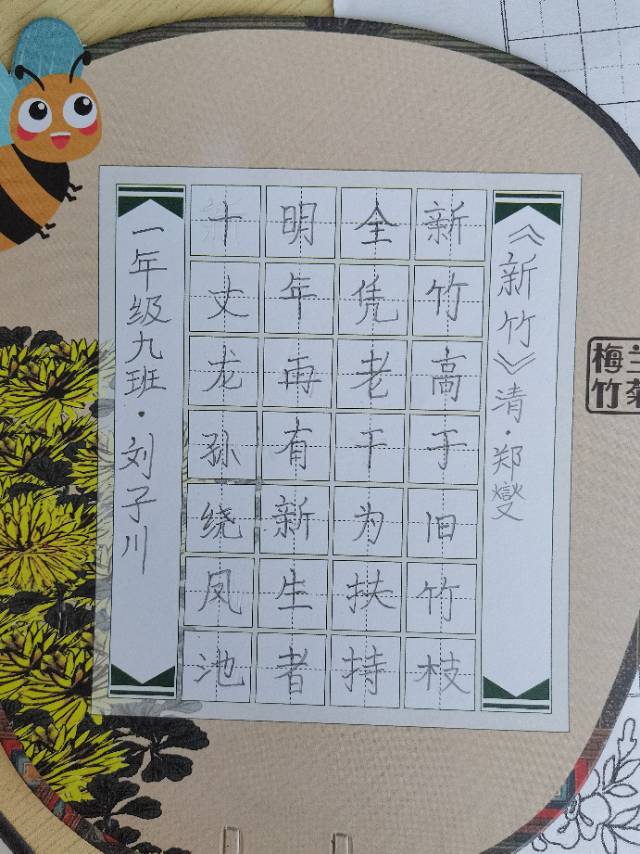 《新竹》清·郑燮
新竹高于旧竹枝
全凭老干为扶持
明年再有新生者
十丈龙孙绕凤池
一年级九班·刘子川
梅竹